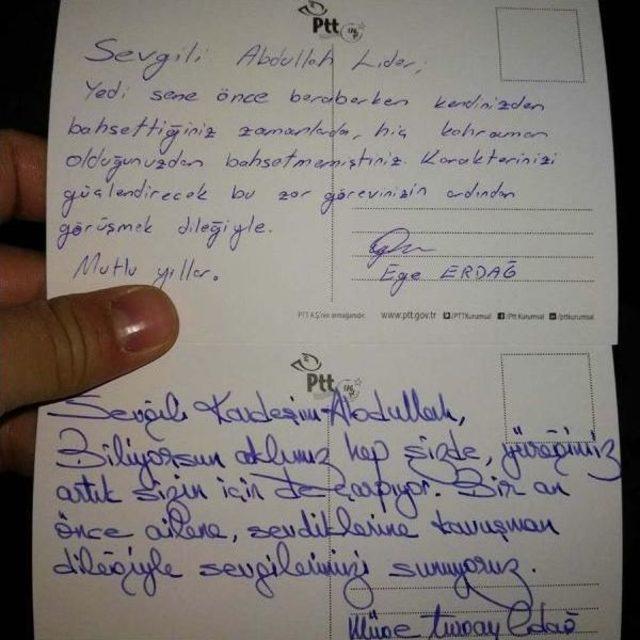 Ptt
Sevgili Abdullah Lider,
Yedi sene önce beraberken kendinizden
bahsettiğiniz zamanlarda, hiç kahraman
olduğunuzdan bahsetmemiştiniz. Karakterinizi
güçlendirecek bu zor görevinizin ardından
görüşmek dileğiyle.
Mutlu yıllar.
Ege ERDAĞ
PTT A.Ş.'nin armağanıdır. www.ptt.gov.tr /PTTKurumsal /Ptt Kurumsal /pttkurumsal
Ptt
Sevgili Kardeşim Abdullah,
Biliyorsun aklımız hep sizde, yüreğimiz
artık sizin için de çarpıyor. Bir an
önce ailene, sevdiklerine kavuşman
dileğiyle sevgilerimizi sunuyoruz.
Müge